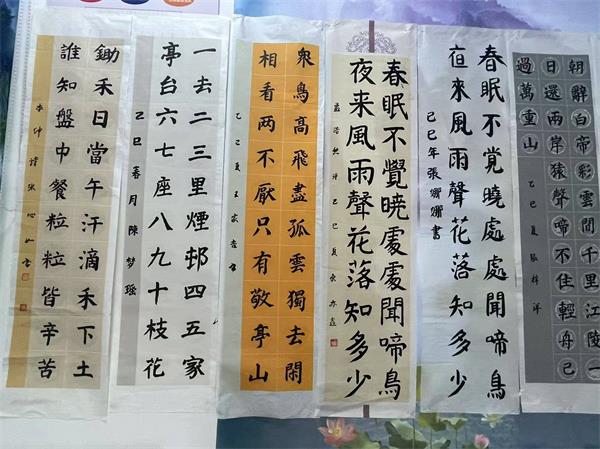 朝辭白帝彩雲間千里江陵一
日還兩岸猿聲啼不住輕舟已
過萬重山
乙巳夏張梓洋
春眠不覚曉處處聞啼鳥
夜来風雨聲花落知多少
己巳年張姍姍書
春眠不覺曉處處聞啼鳥
夜来風雨聲花落知多少
孟浩然诗乙巳夏
衆鳥高飛盡孤雲獨去閑
相看两不厭只有敬亭山
乙巳夏王家
一去二三里煙邨四五家
亭台六七座八九十枝花
乙巳春月陳梦瑶
鋤禾日當午汗滴禾下土
誰知盤中餐粒粒皆辛苦
李绅诗張